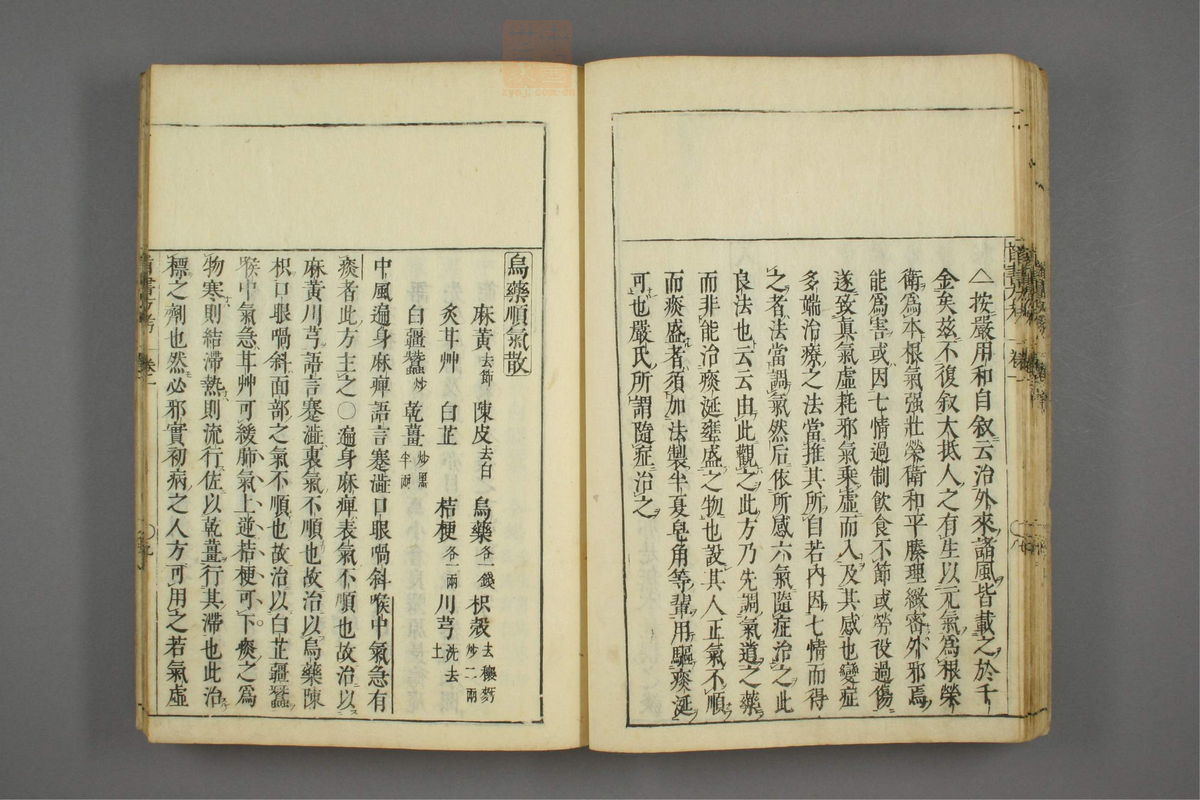 △按嚴用和自敘云治外來諸風皆載之於千
金矣茲不復敘大抵人之有生以元氣爲根榮
衛爲本根氣强壯榮衛和平腠理緻密外邪焉
能爲害或因七情過制飲食不節或勞役過傷
遂致眞氣虛耗邪氣乗虛而入及其感也變症
多端治療之法當推其所自若內因七情而得
之者法當調氣然后依所感六氣隨症治之此
良法也云云由此觀之此方乃先調氣道之藥
而非能治痰涎壅盛之物也設其人正氣不順
而痰盛者須加法製半夏皂角等輩用驅痰涎
可也嚴氏所謂隨症治之
烏藥順氣散
麻黄去節 陳皮去白 烏藥各二錢 枳殼去穰麩炒二兩
炙甘艸 白芷 桔梗各一兩 川芎洗去土
白疆蠶炒 乾薑炒黑半兩
中風遍身麻痺語言蹇澁口眼喎斜喉中氣急有
痰者此方主之〇遍身麻痺表氣不順也故治以
麻黄川芎語言蹇澁裏氣不順也故治以烏藥陳
枳口眼喎斜面部之氣不順也故治以白芷疆蠶
喉中氣急甘艸可緩肺氣上逆桔梗可下痰之爲
物寒則結滯熱則流行佐以乾薑行其滯也此治
標之劑也然必邪實初病之人方可用之若氣虛